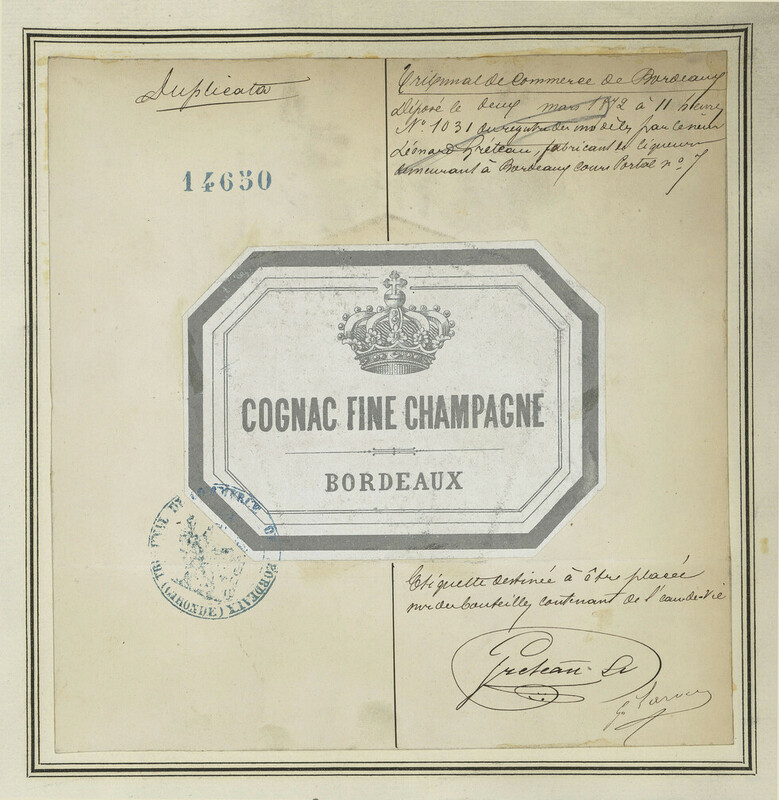 Duplicata
14650
Tribunal de Commerce de Bordeaux
Déposé le deux mars 1872 à 11 heures
N° 1031 du registre des modèles par le sieur
Léonard Gréteau, fabricant de liqueurs
demeurant à Bordeaux cours Portal n° 7
COGNAC FINE CHAMPAGNE
BORDEAUX
TRIBUNAL DE COMMERCE DE BORDEAUX (GIRONDE)
Etiquette destinée à être placée
sur des bouteilles contenant de l'eau-de-vie
Greteau